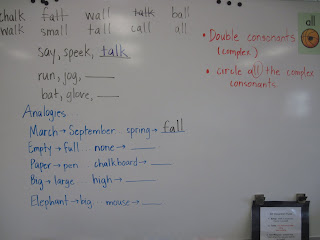 chalk fall wall talk ball
walk small tall call all
say, speek, talk
run, jog, ____
bat, glove, ____
Analogies
March→September.. spring→ fall
Empty→full... none→ ____
Paper→pen chalkboard→ ____
Big→large.. high→ ____
Elephant→big.. mouse→ ____
• Double consonants
(complex)
• circle all the complex
consonants
all